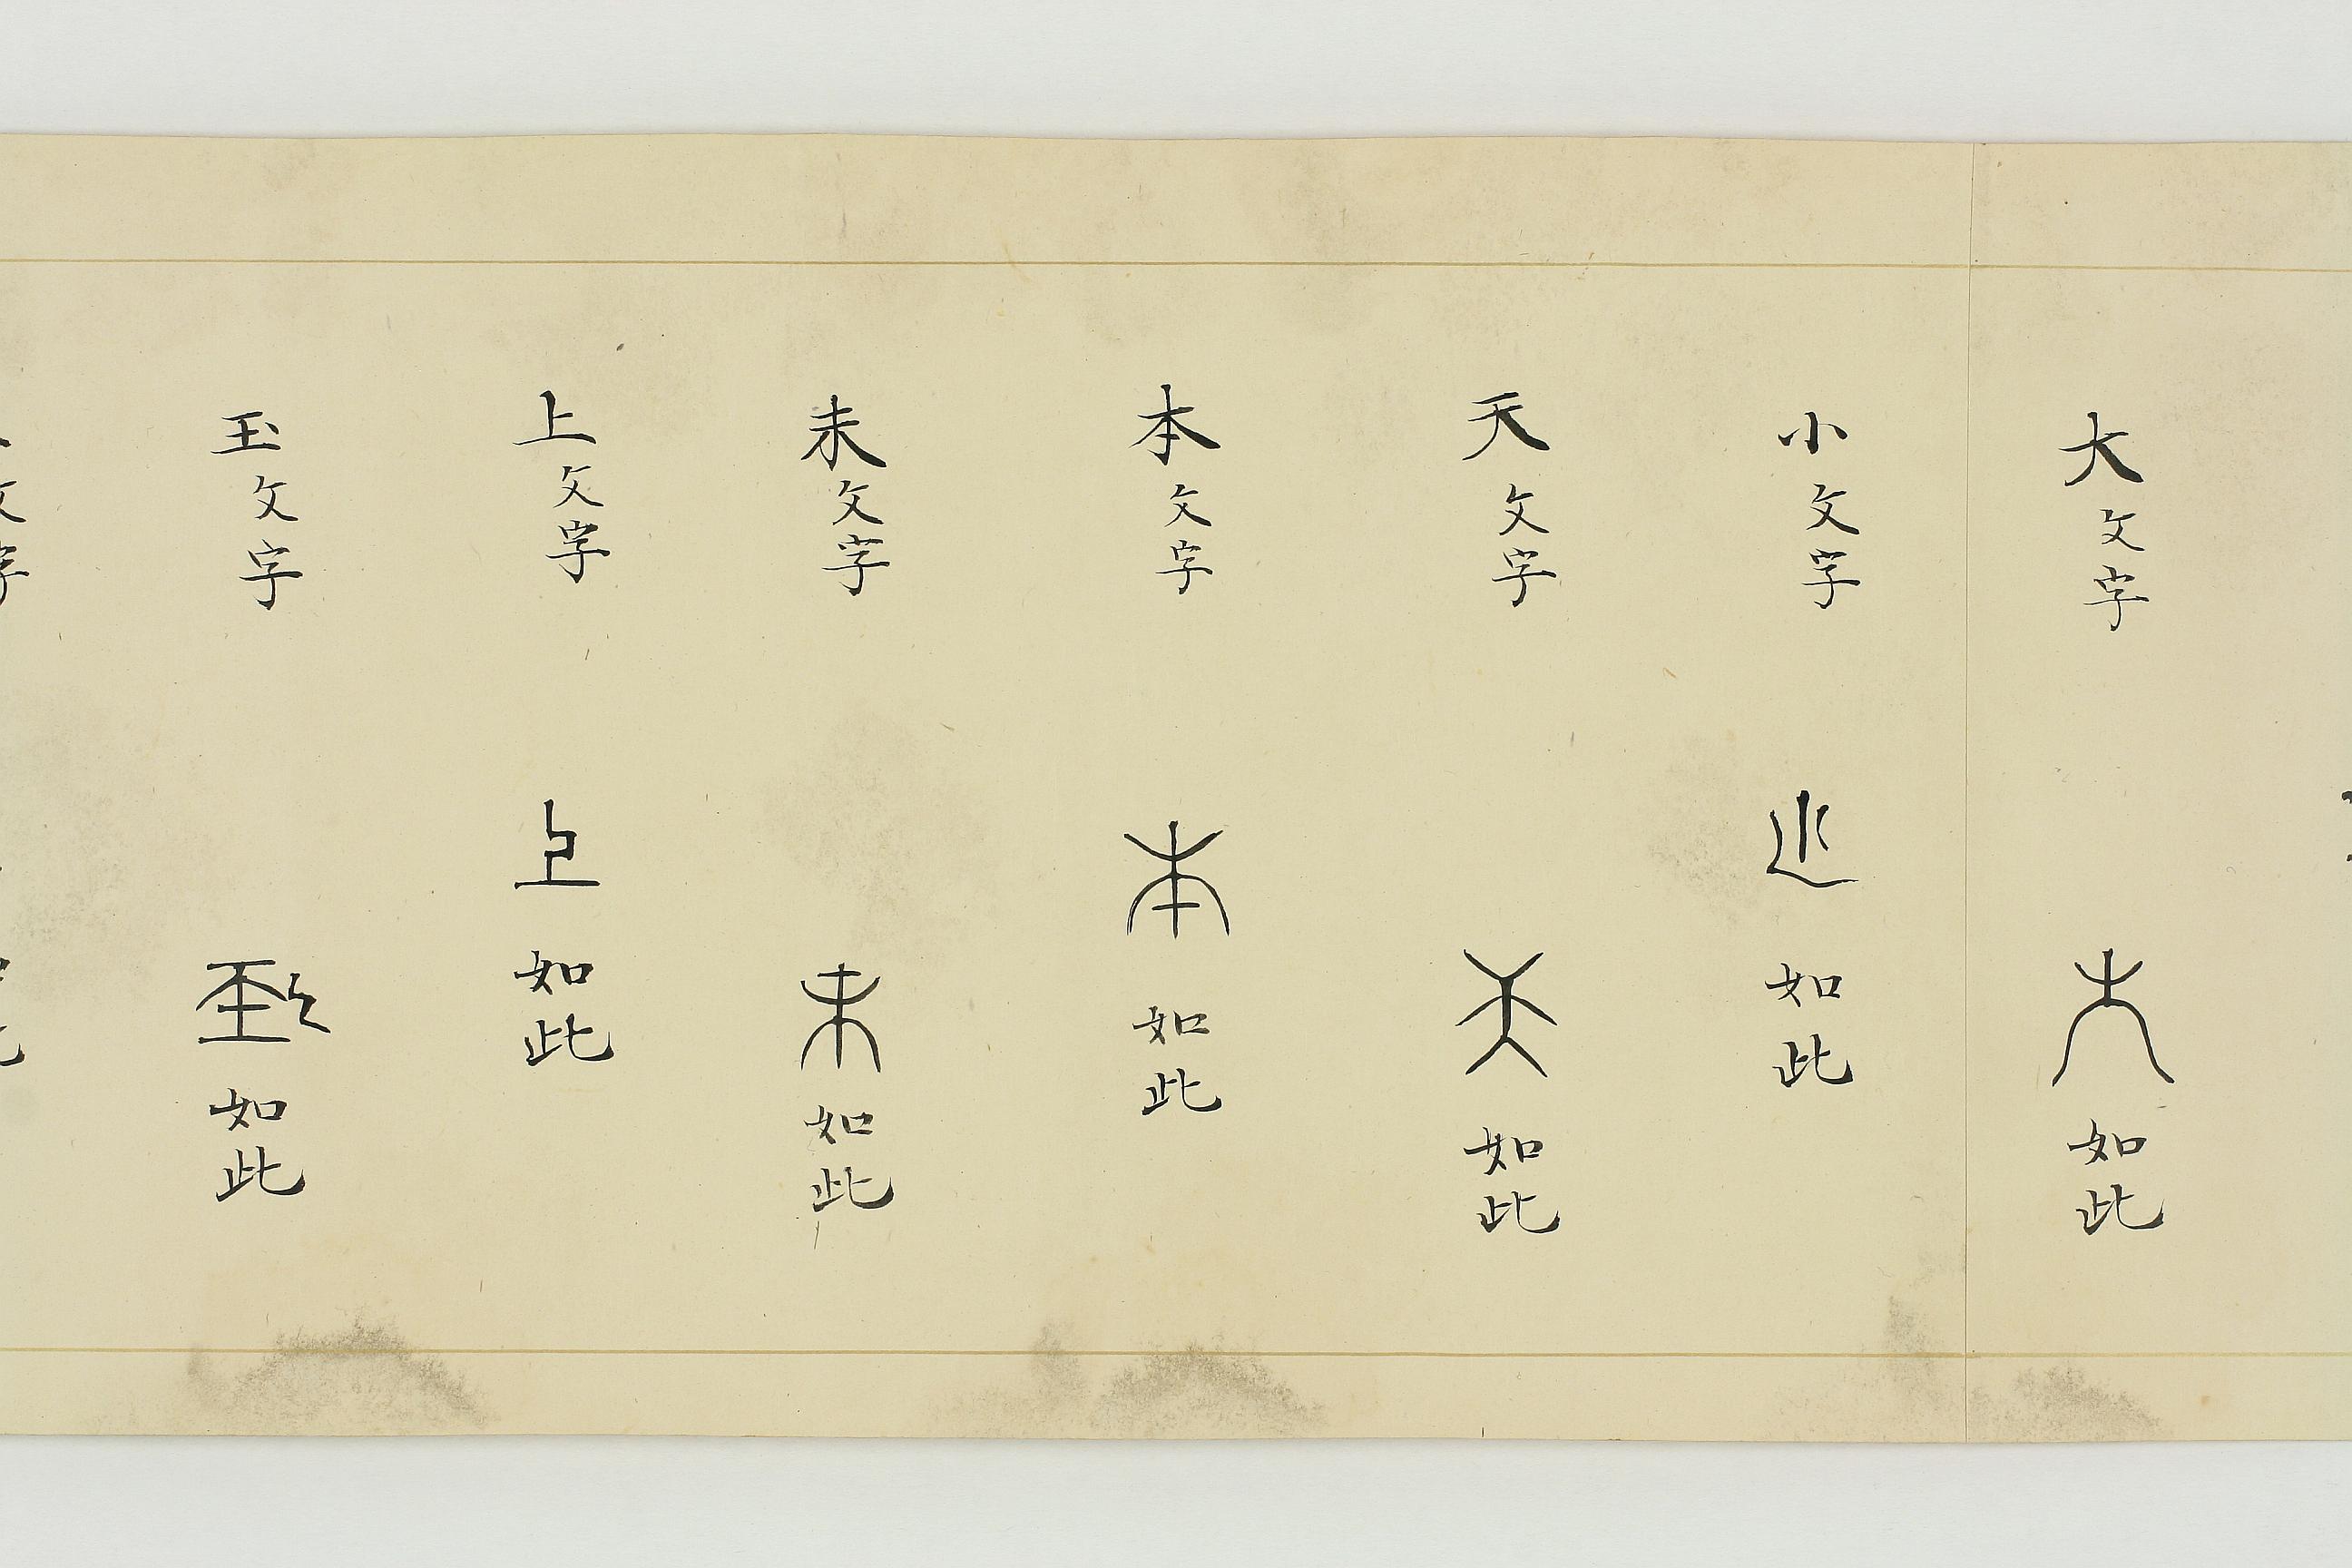 大文字 大 如此
小文字 小 如此
天文字 天 如此
本文字 本 如此
未文字 未 如此
上文字 上 如此
玉文字 玉 如此
文字